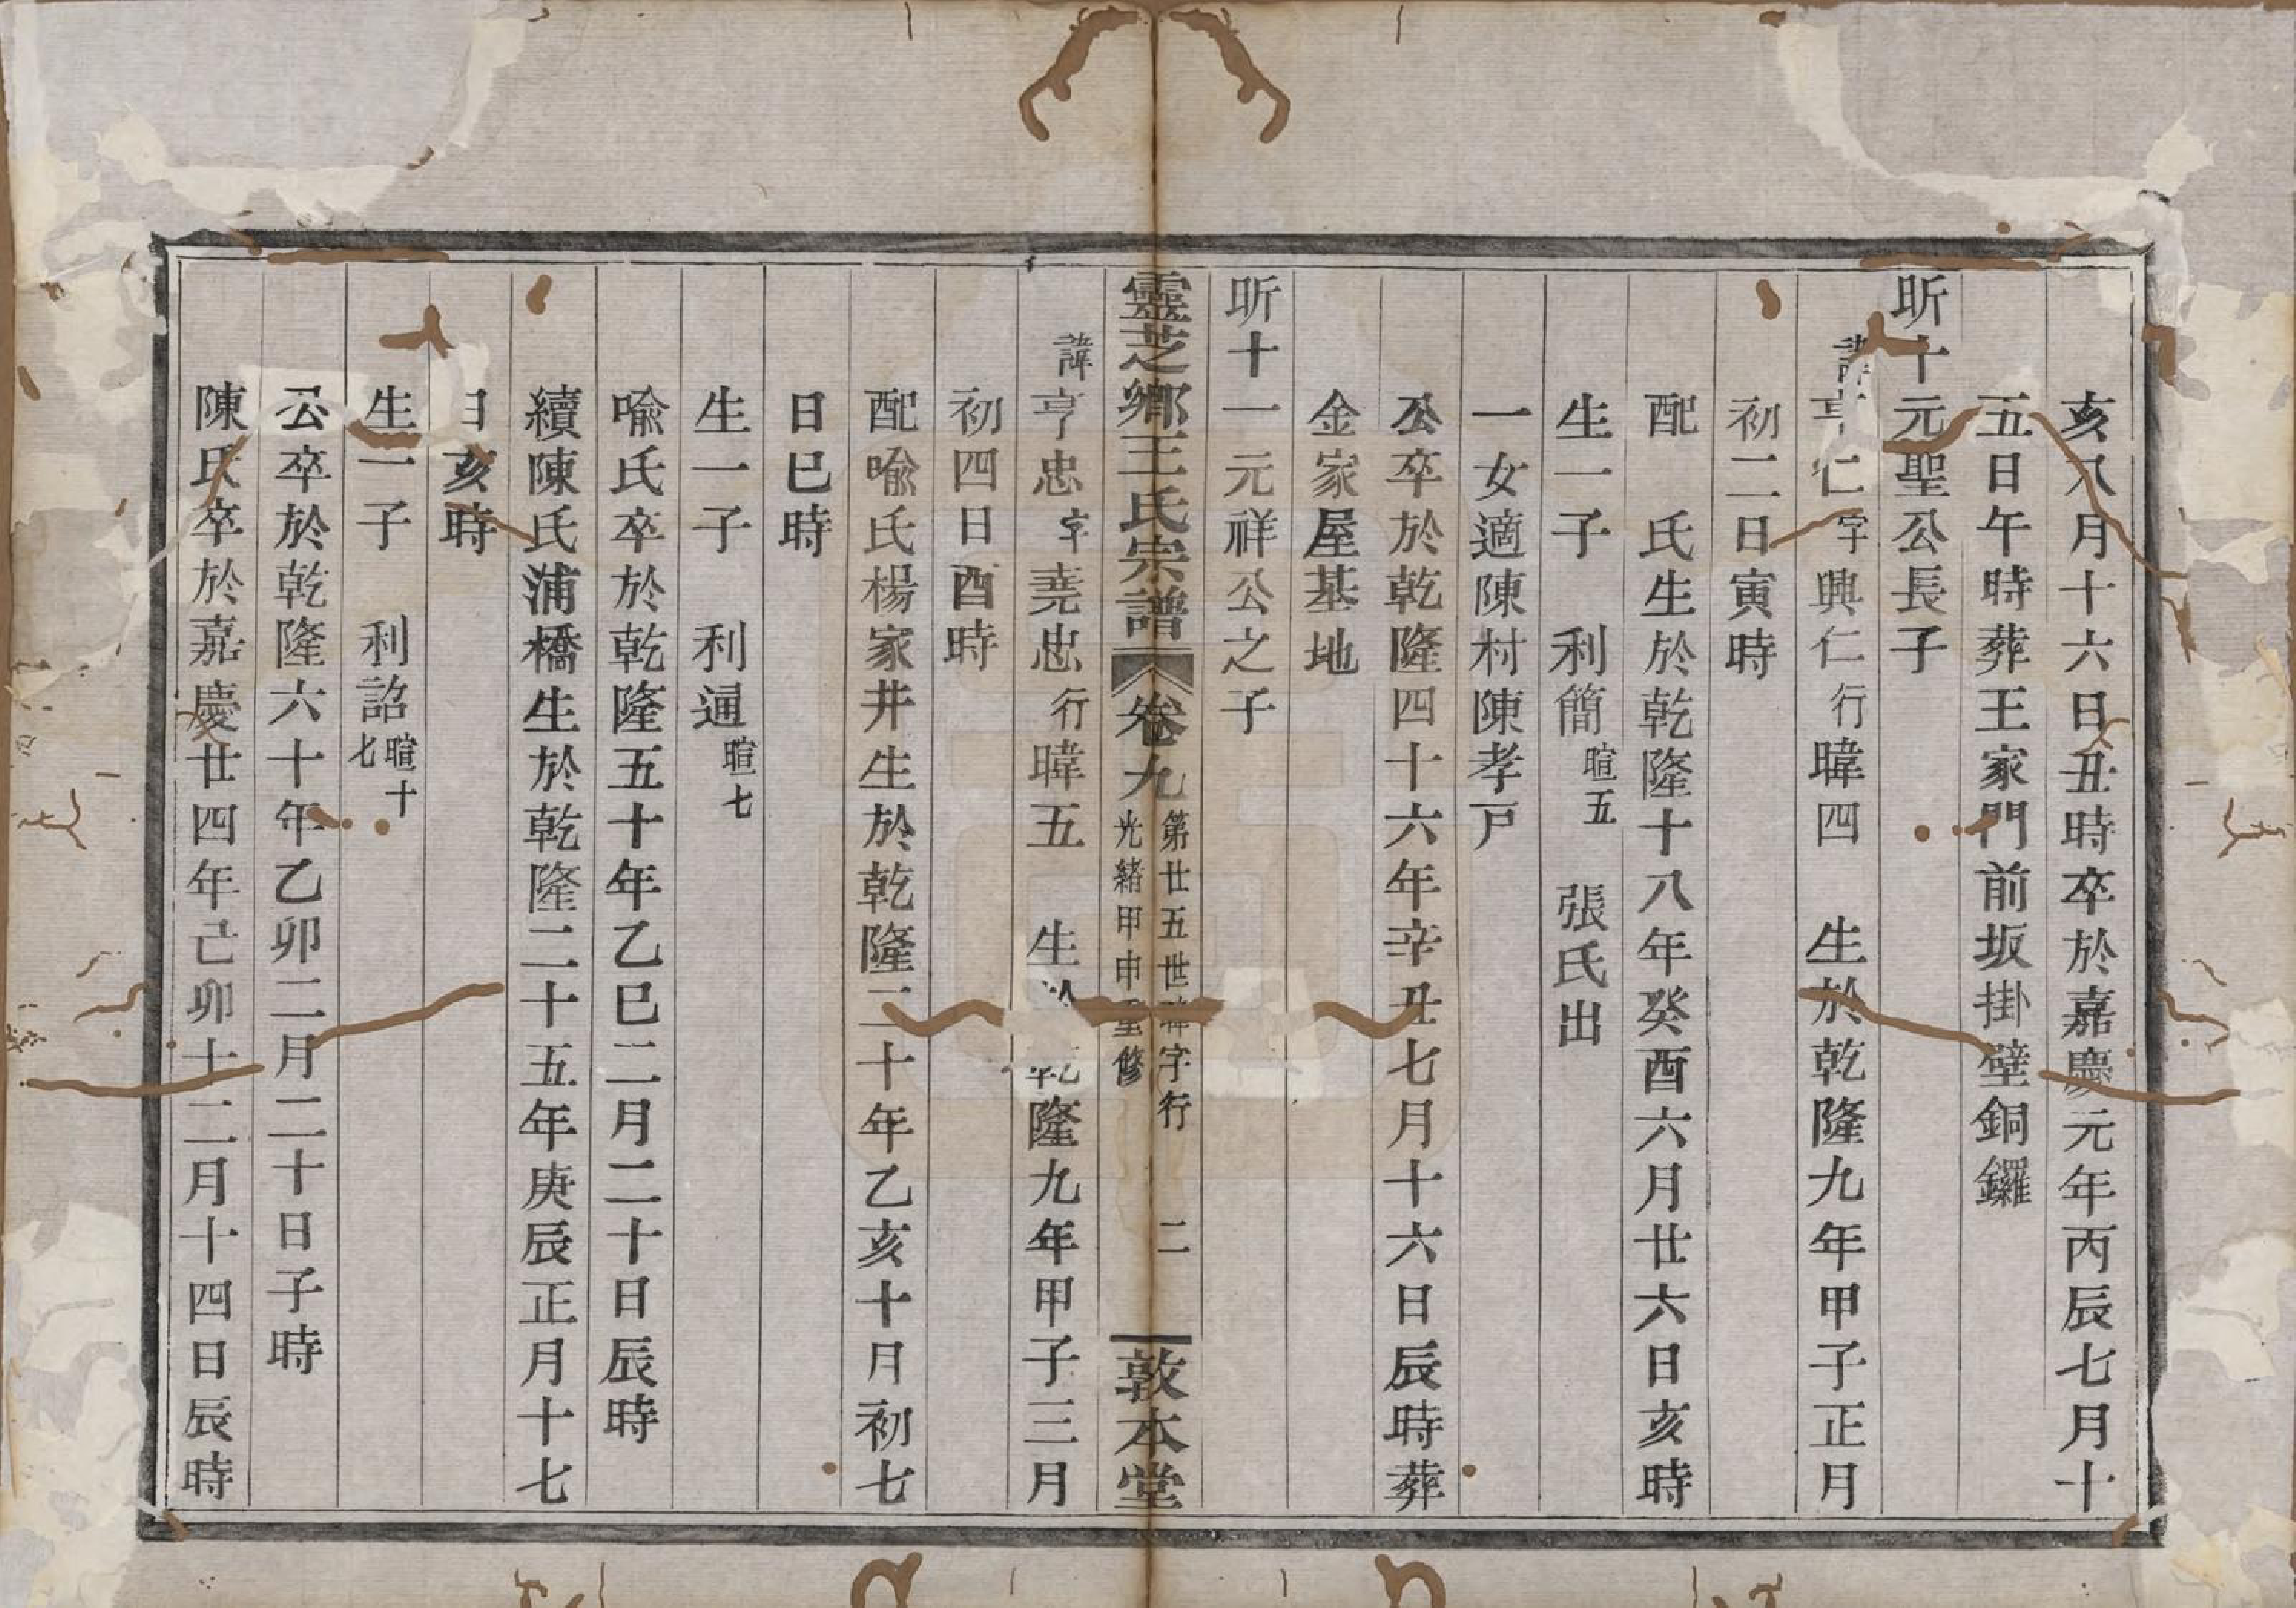 亥八月十六日丑時卒於嘉慶元年丙辰七月十
五日午時葬王家門前坂掛壁銅鑼
昕十元聖公長子
諱亨仁字興仁行暐四 生於乾隆九年甲子正月
初二日寅時
配 氏生於乾隆十八年癸酉六月廿六日亥時
生一子 利簡暄五 張氏出
一女適陳村陳孝戸
公卒於乾隆四十六年辛丑七月十六日辰時葬
金家屋基地
昕十一元祥公之子
靈芝鄉王氏宗譜 卷九 第廿五世暐字行 光緒甲申重修 二 敦本堂
諱亨忠字堯忠行暐五 生於乾隆九年甲子三月
初四日酉時
配喩氏楊家井生於乾隆二十年乙亥十月初七
日巳時
生一子 利通暄七
喩氏卒於乾隆五十年乙巳二月二十日辰時
續陳氏浦橋生於乾隆二十五年庚辰正月十七
日亥時
生一子 利詔暄十七
公卒於乾隆六十年乙卯二月二十日子時
陳氏卒於嘉慶廿四年己卯十二月十四日辰時